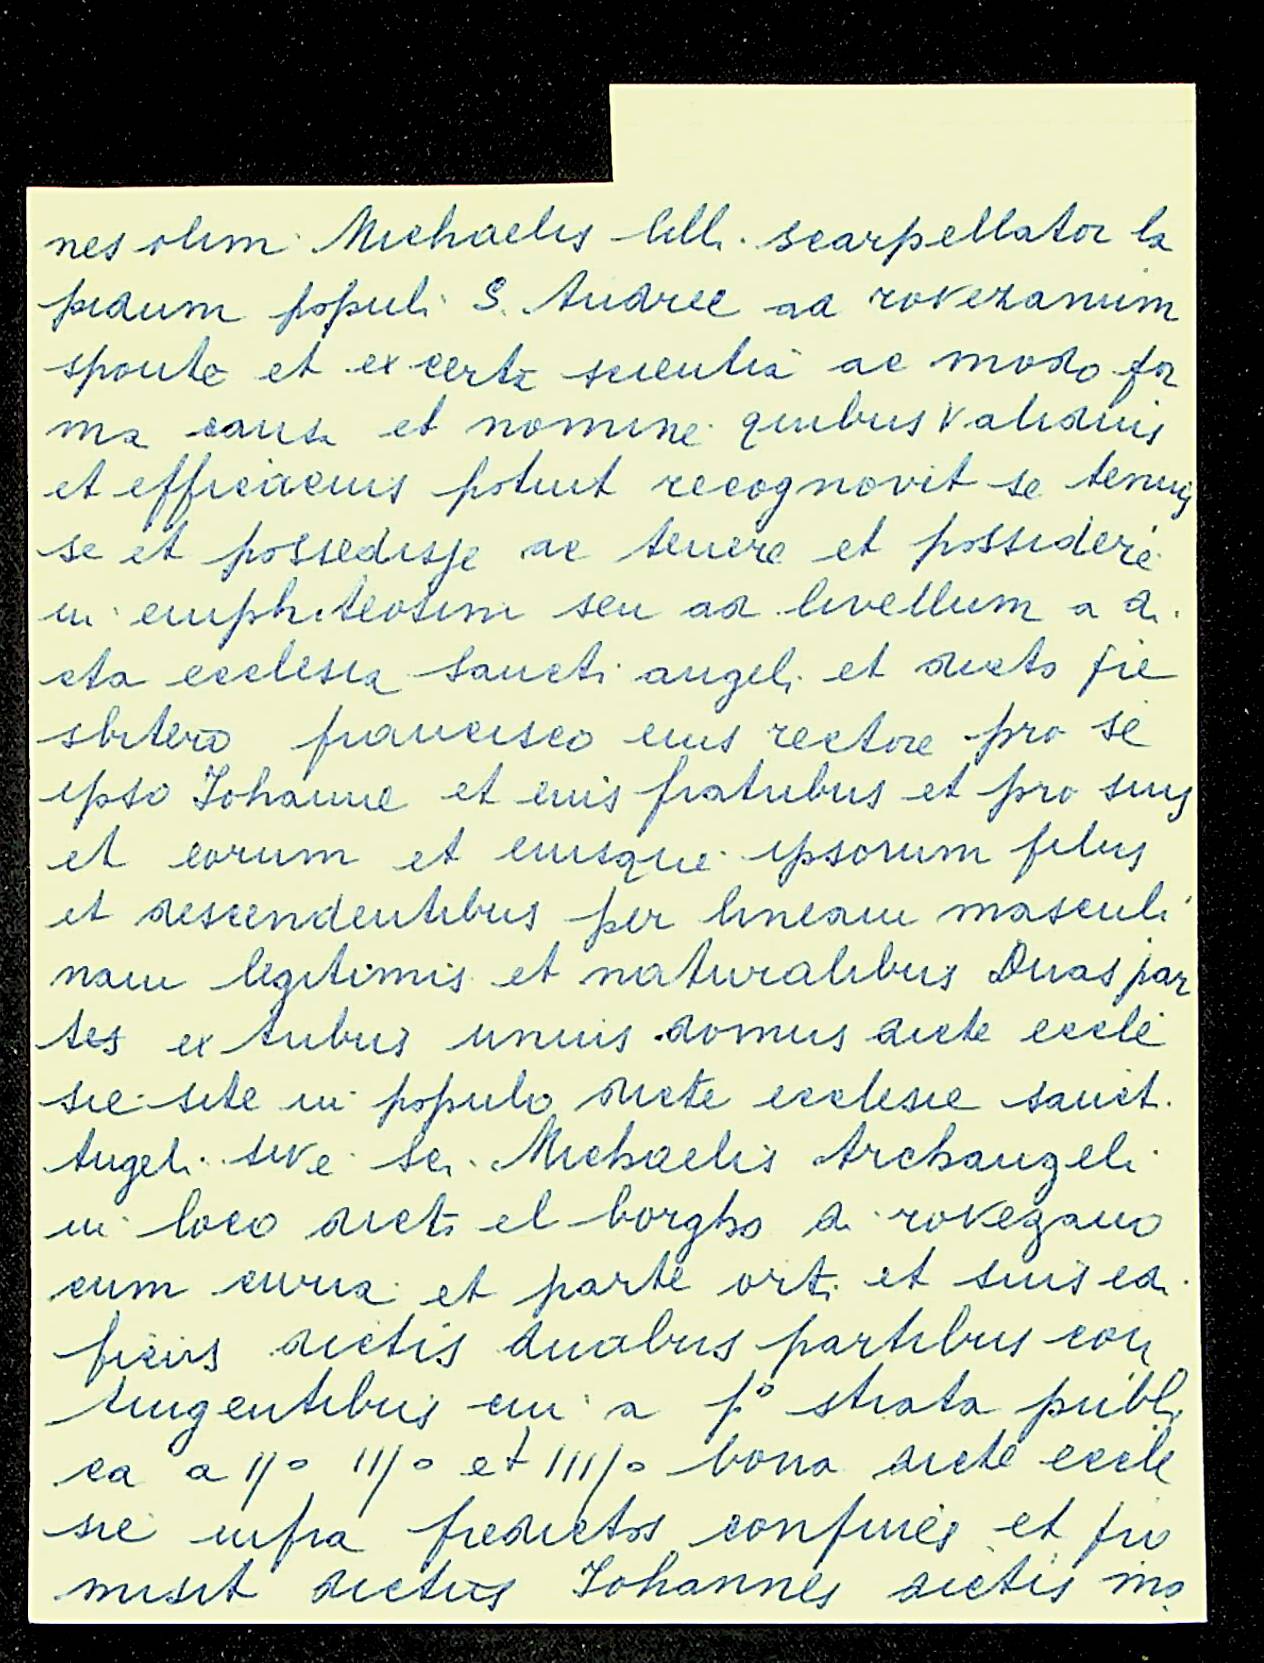 nes olim Michaelis lilli scarpellator la
pidum populi S. Andree ad rovezanum
sponte et ex certa scientia ac modo for
ma causa et nomine quibus validius
et efficacius potuit recognovit se tenuis
se et possedisse ac tenere et possidere
in emphiteosim seu ad livellum a di
cta ecclesia Sancti angeli et dicto pre
sbitero francisco eius rectore pro se
ipso Iohanne et eius fratribus et pro suis
et eorum et cuiusque ipsorum filiis
et descendentibus per lineam masculi
nam legitimis et naturalibus Duas par
tes ex tribus unius domus dicte eccle
sie site in populo dicte ecclesie sancti
Angeli sive Sci. Michaelis Archangeli
in loco dicto el borgho di rovezano
cum curia et parte orti et suis edi
ficiis dictis duabus partibus con
tingentibus cui a po strata publi
ca a IIo IIIo et IIIIo bona dicte eccle
sie infra predictos confines et pro
misit dictus Iohannes dictis no